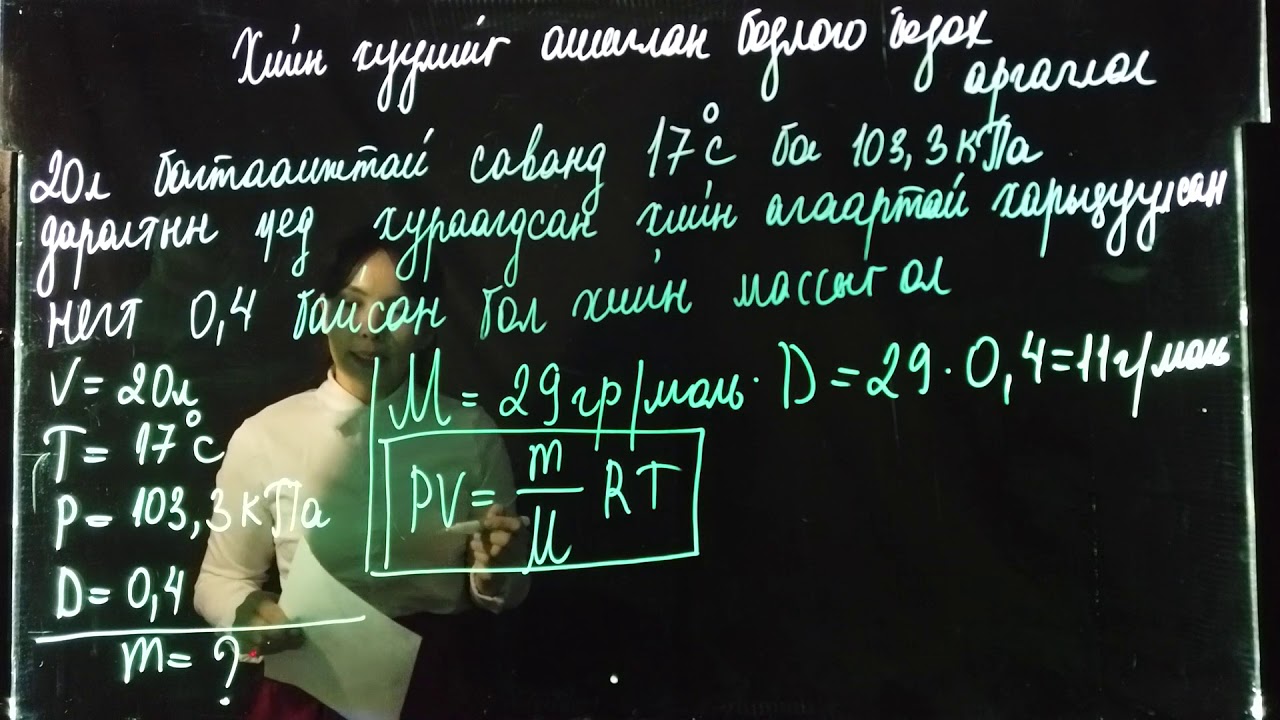 Хийн хуулийг ашиглан бодлого бодох
аргачлал
20л багтаамжтай саванд 17°с ба 103,3кПа
даралтын үед хураагдсан хийн агаартай харьцуулсан
нягт 0,4 байсан бол хийн массыг ол
V = 20л
T = 17°с
P = 103,3кПа
D = 0,4
m = ?
M = 29гр/моль · D = 29 · 0,4 = 11г/моль
PV = m/M RT